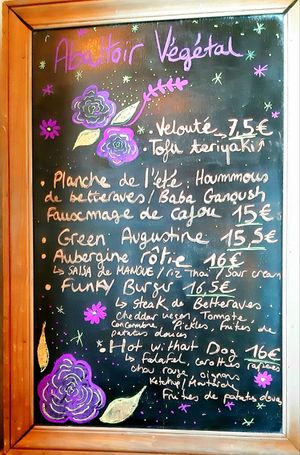 Abattoir Végétal
• Velouté 7,5€
• Tofu teriyaki
• Planche de l'été: Hoummous
de betteraves / Baba Ganoush
Fauxmage de cajou 15€
• Green Augustine 15,5€
• Aubergine rôtie 16€
↳ SALSA de MANGUE / riz Thaï / Sour cream
• Funky Burger 16,5€
↳ steak de Betteraves
cheddar vegan, Tomate
concombre, Pickles, frites de
patates douces
• Hot without Dog 16€
↳ falafel, carottes rapées
chou rouge, oignons
Ketchup / Moutarde
Frites de patates douces